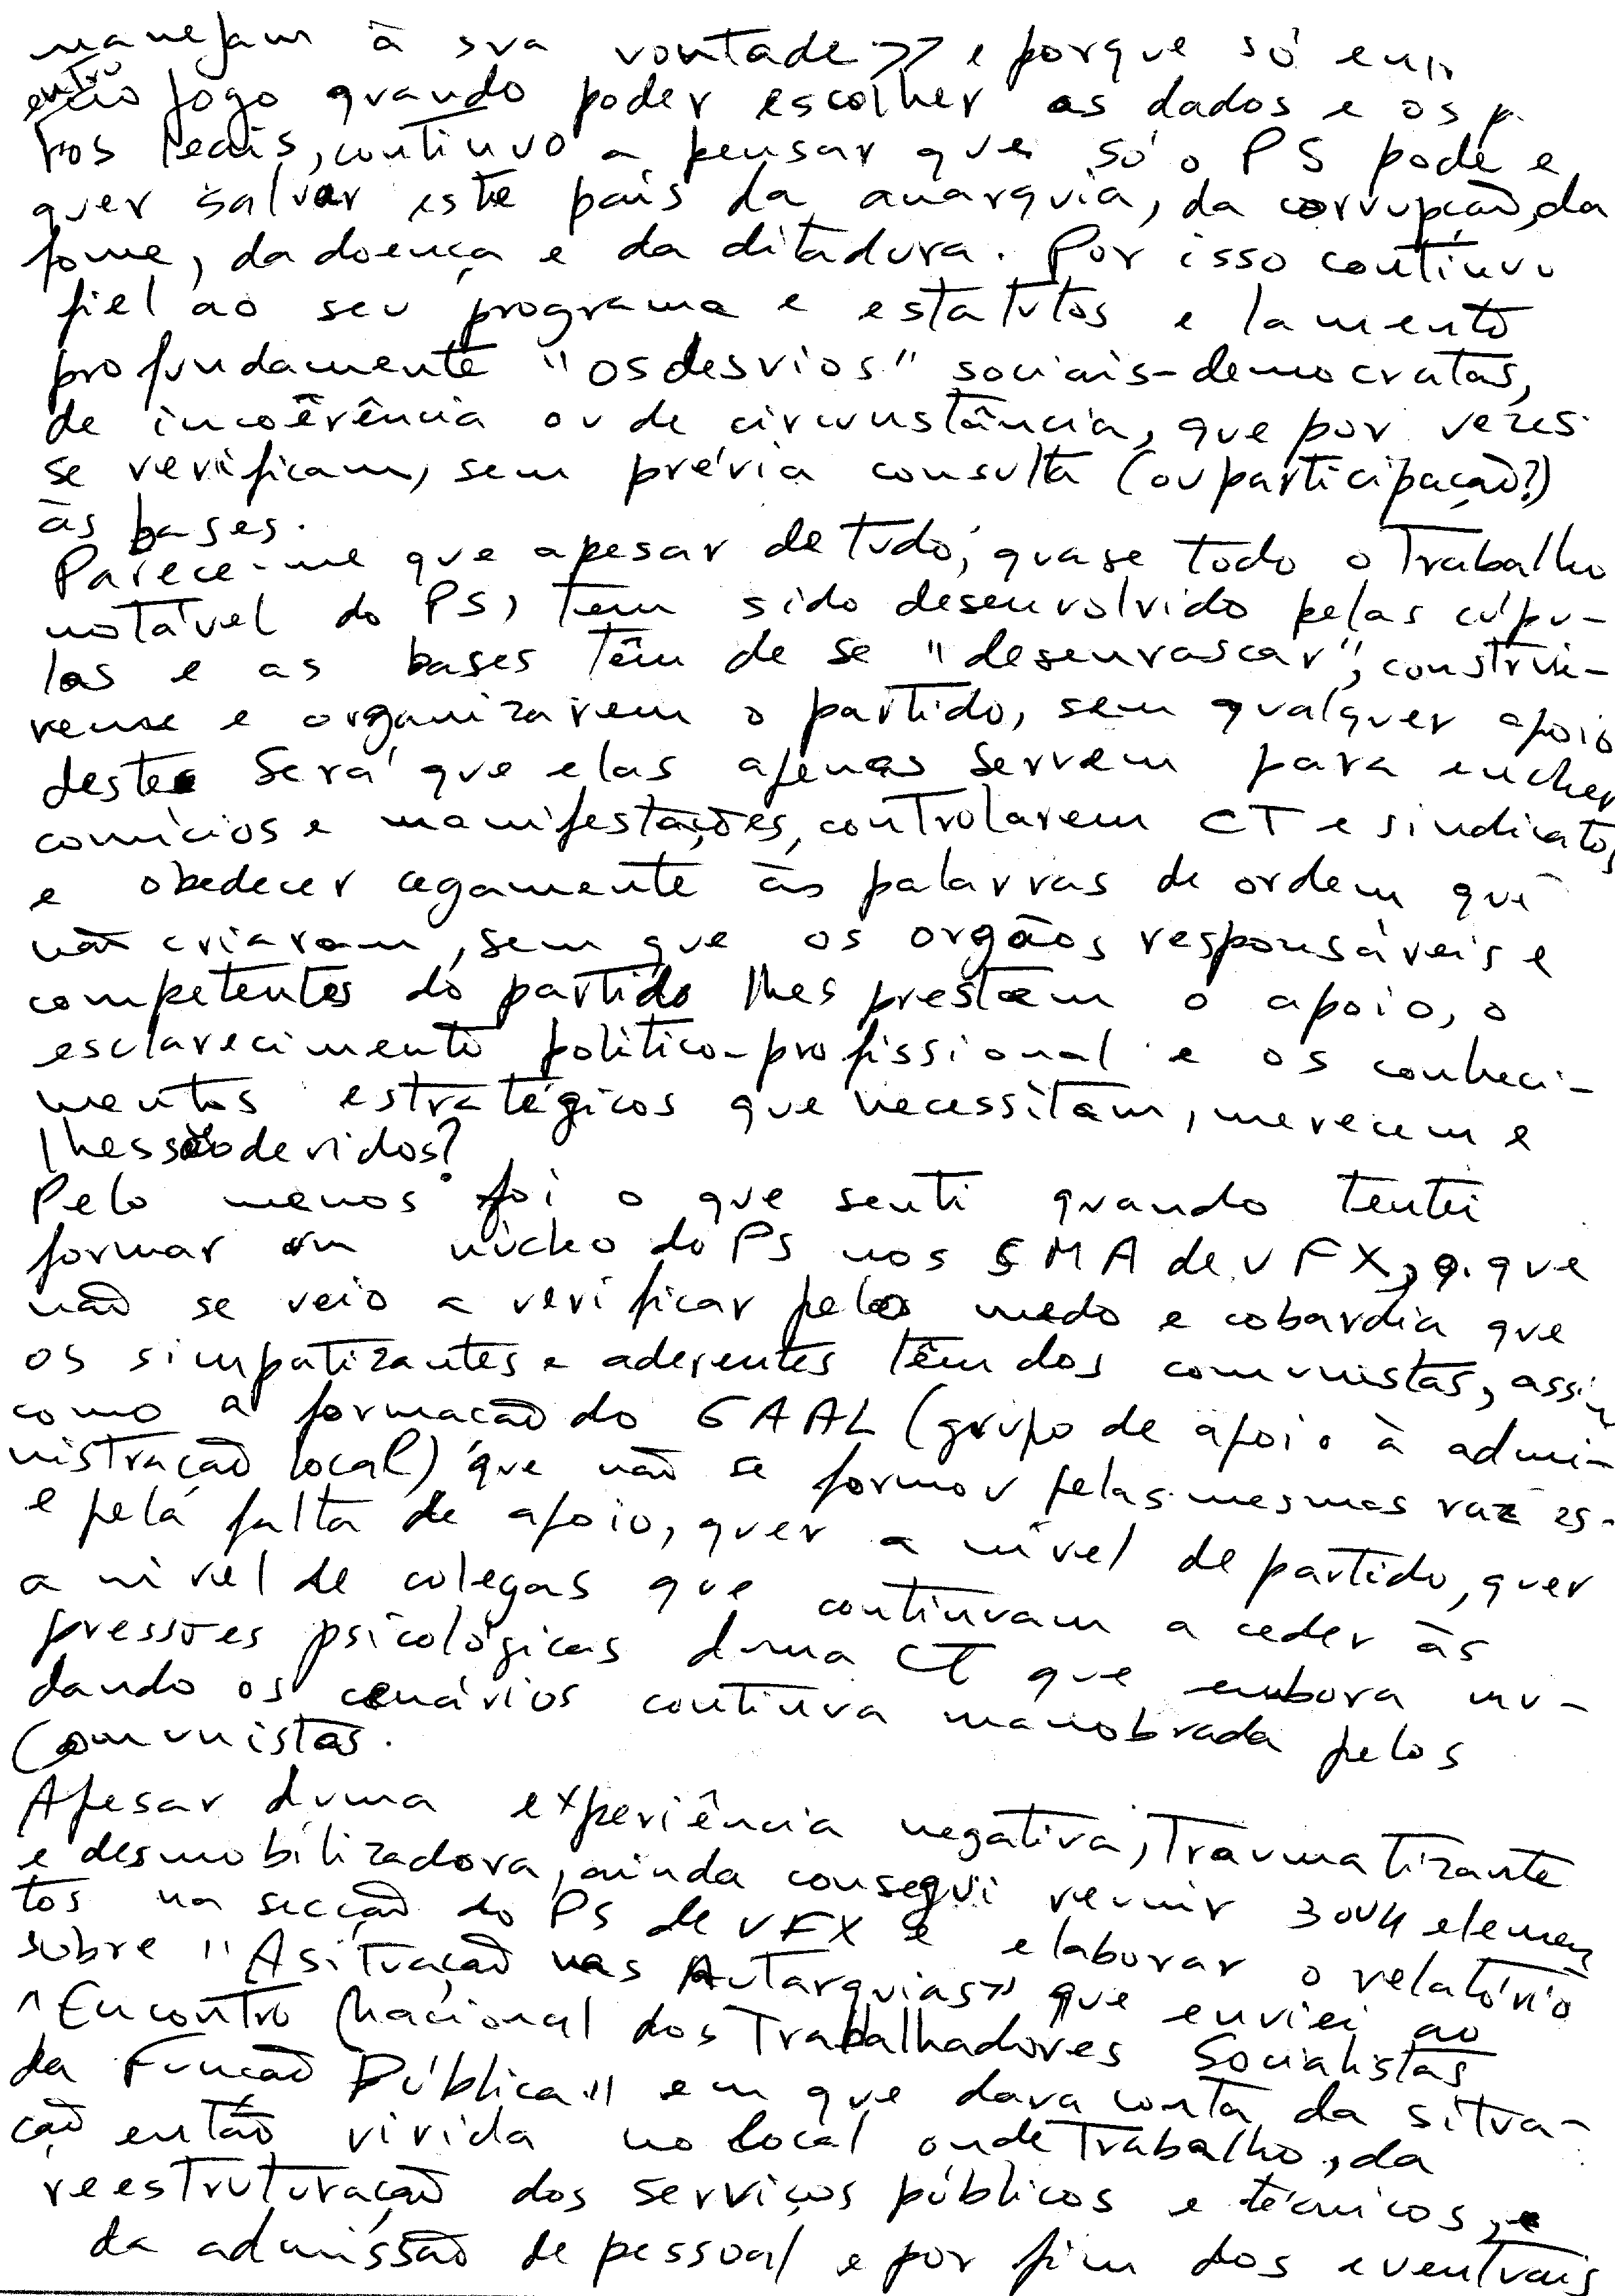 manejam à sua vontade>> e porque só
entro jogo quando poder escolher os dados e os
reais, continuo a pensar que só o PS pode e
quer salvar este país da anarquia, da corrupção, da
fome, da doença e da ditadura. Por isso continuo
fiel ao seu programa e estatutos e lamento
profundamente "os desvios" sociais-democratas,
de incoêrência ou de circunstância, que por vezes
se verificam, sem prévia consulta (ou participação?)
às bases.
Parece-me que apesar de tudo, quase todo o Trabalho
notável do PS, tem sido desenvolvido pelas cúpu-
las e as bases têm de se "desenrascar", construi-
rem-se e organizarem o partido, sem qualquer apoio
deste. Será que elas apenas servem para encher
comícios e manifestações, controlarem CT e sindicatos
e obedecer cegamente às palavras de ordem que
não criaram, sem que os orgãos responsáveis e
competentes do partido lhes prestem o apoio, o
esclarecimento político-profissional e os conheci-
mentos estratégicos que necessitam, merecem e
lhes são devidos?
Pelo menos foi o que senti quando tentei
formar um núcleo do PS nos SMA de VFX, o que
não se veio a verificar pelo medo e cobardia que
os simpatizantes e aderentes têm dos comunistas, assim
como a formação do GAAL (grupo de apoio à admi-
nistração local) que não se formou pelas mesmas razões
e pela falta de apoio, quer a nível de partido, quer
a nível de colegas que continuam a ceder às
pressões psicológicas duma CT que embora mu-
dando os cenários continua manobrada pelos
Comunistas.
Apesar duma experiência negativa, Traumatizante
e desmobilizadora, ainda consegui reunir 3 ou 4 elemen
tos na secção do PS de VFX e elaborar o relatório
sobre "A situação nas Autarquias" que enviei ao
"Encontro Nacional dos Trabalhadores Socialistas
da Função Pública" em que dava conta da situa-
ção então vivida no local onde Trabalho, da
reestruturação dos serviços públicos e técnicos, e
da admissão de pessoal e por fim dos eventuais